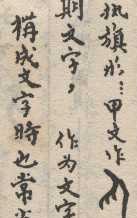 旗形…甲文作
期文字，作为文字
構成文字時也常